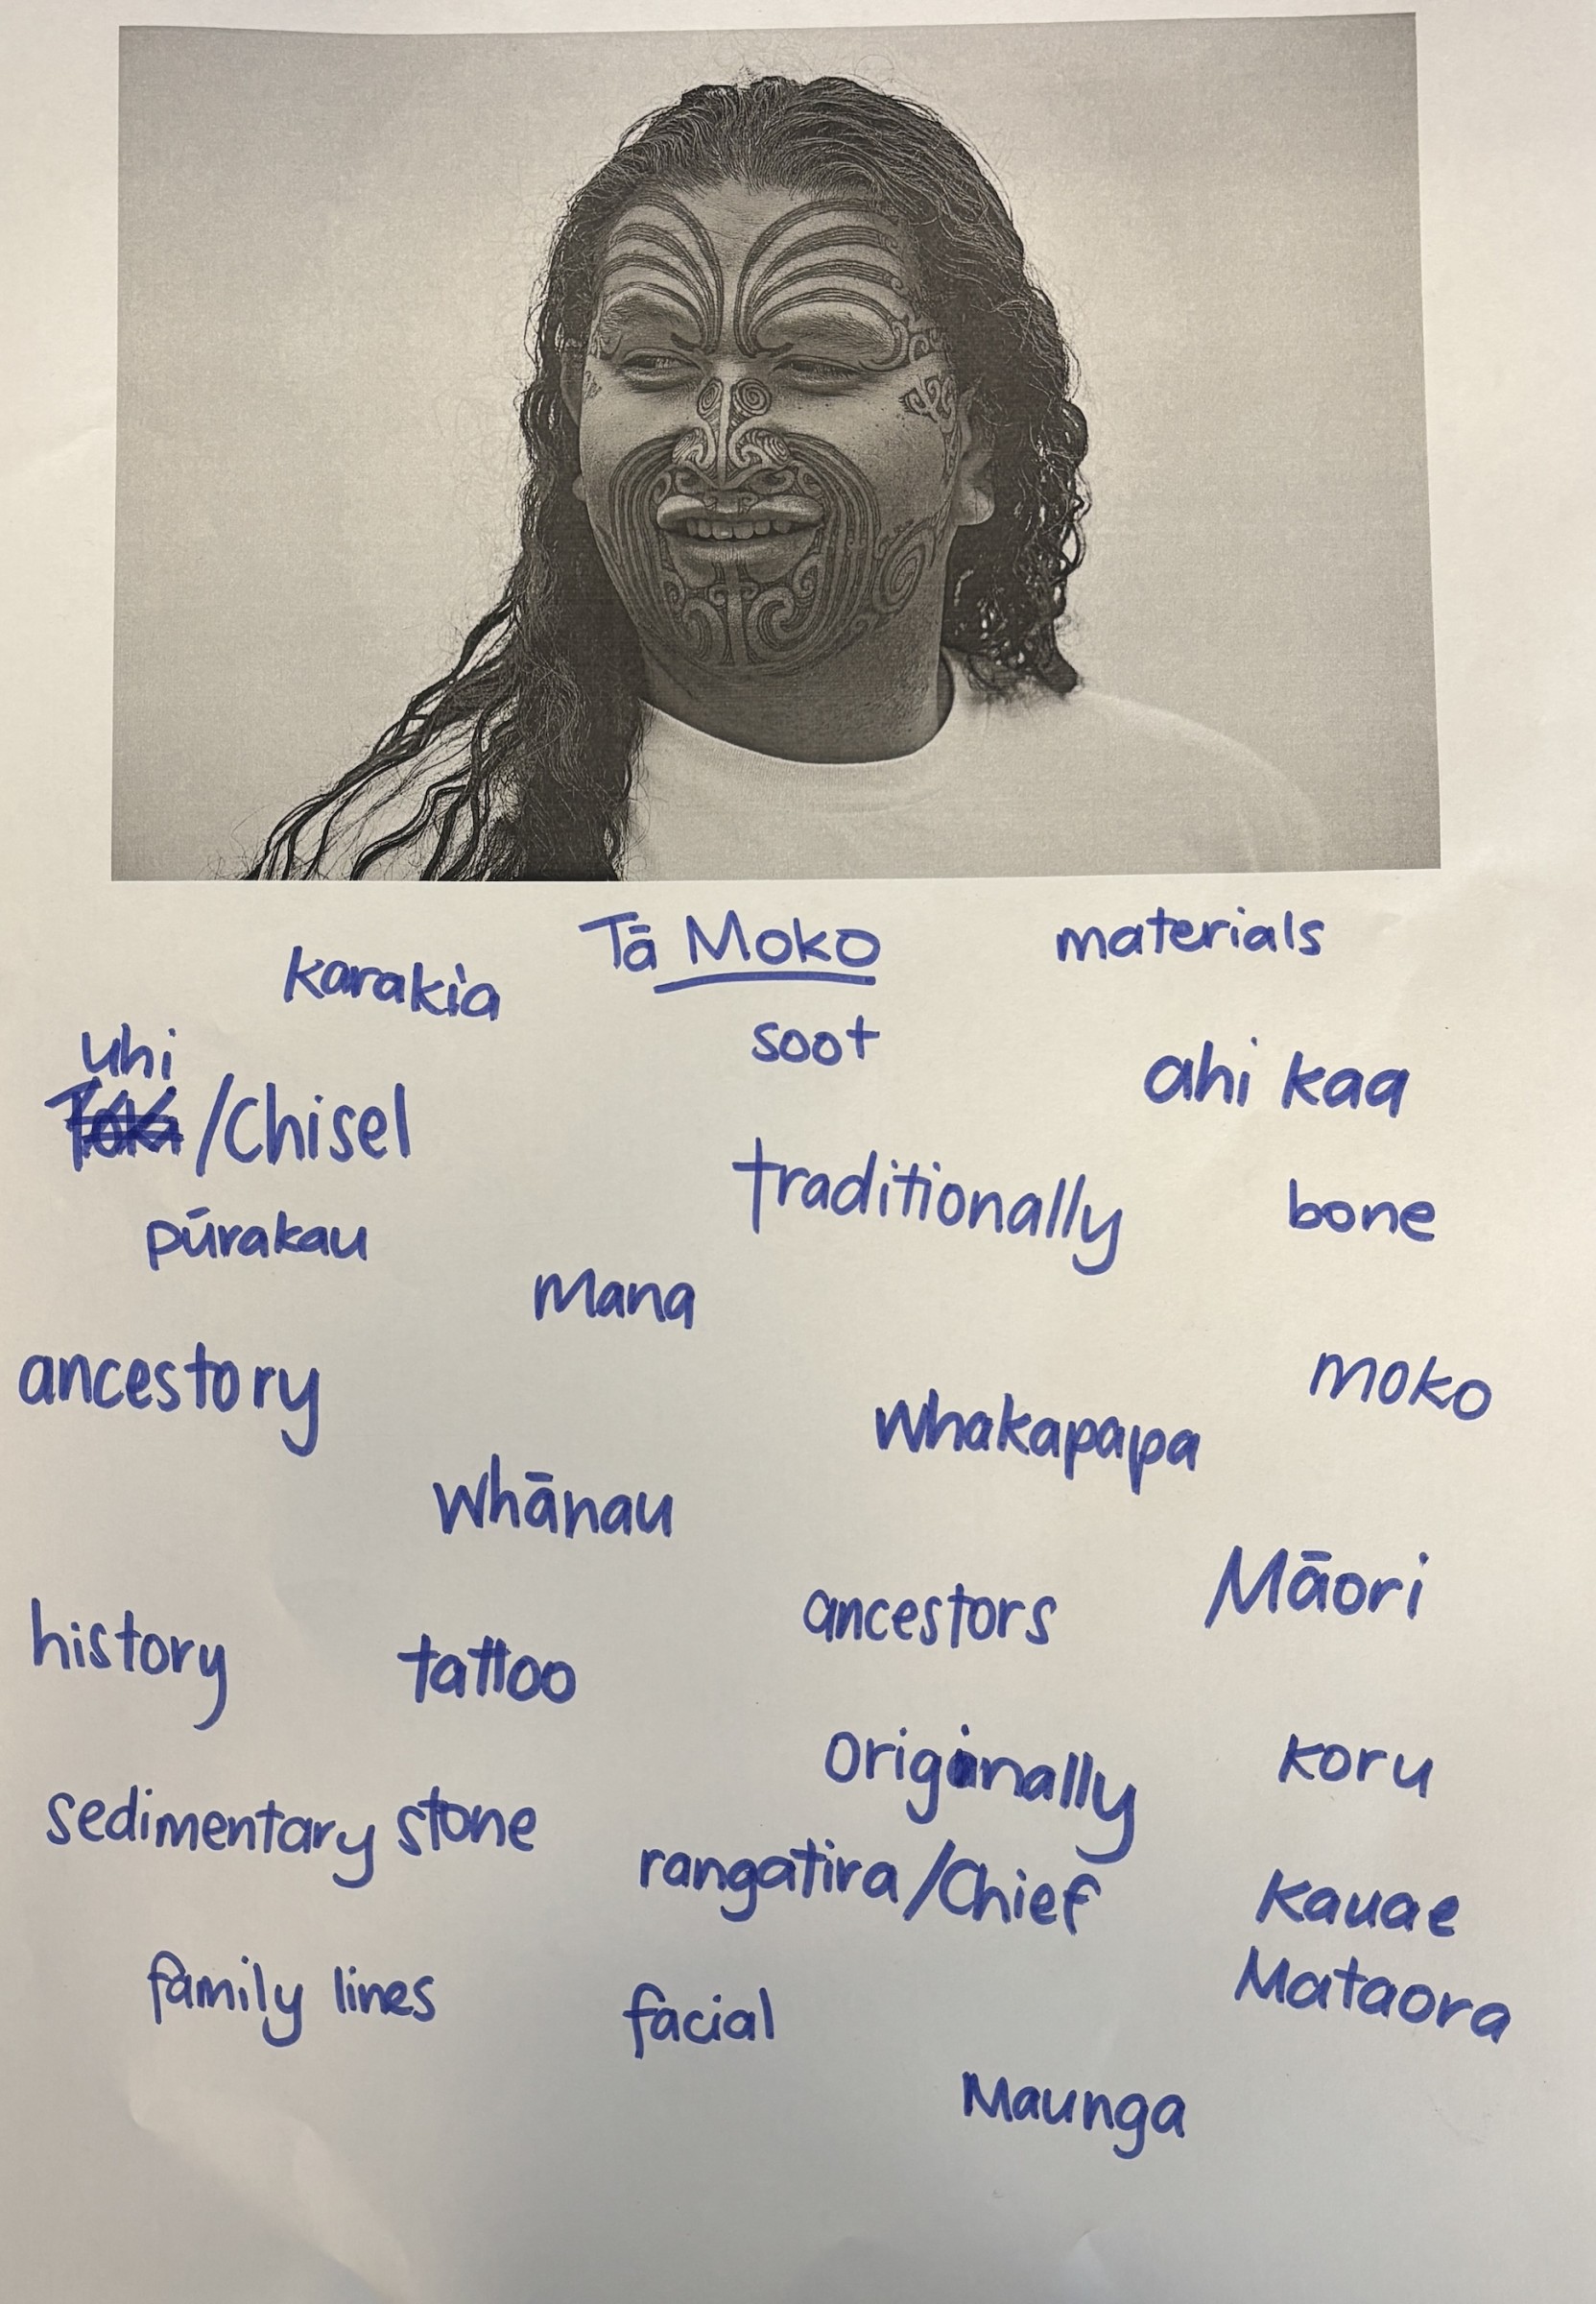 Tā Moko
materials
karakia
soot
uhi
ahi kaa
/Chisel
traditionally
bone
pūrakau
Mana
ancestory
moko
whakapapa
whānau
Māori
ancestors
history
tattoo
originally
koru
sedimentary stone
rangatira/Chief
Kauae
family lines
Mataora
facial
Maunga